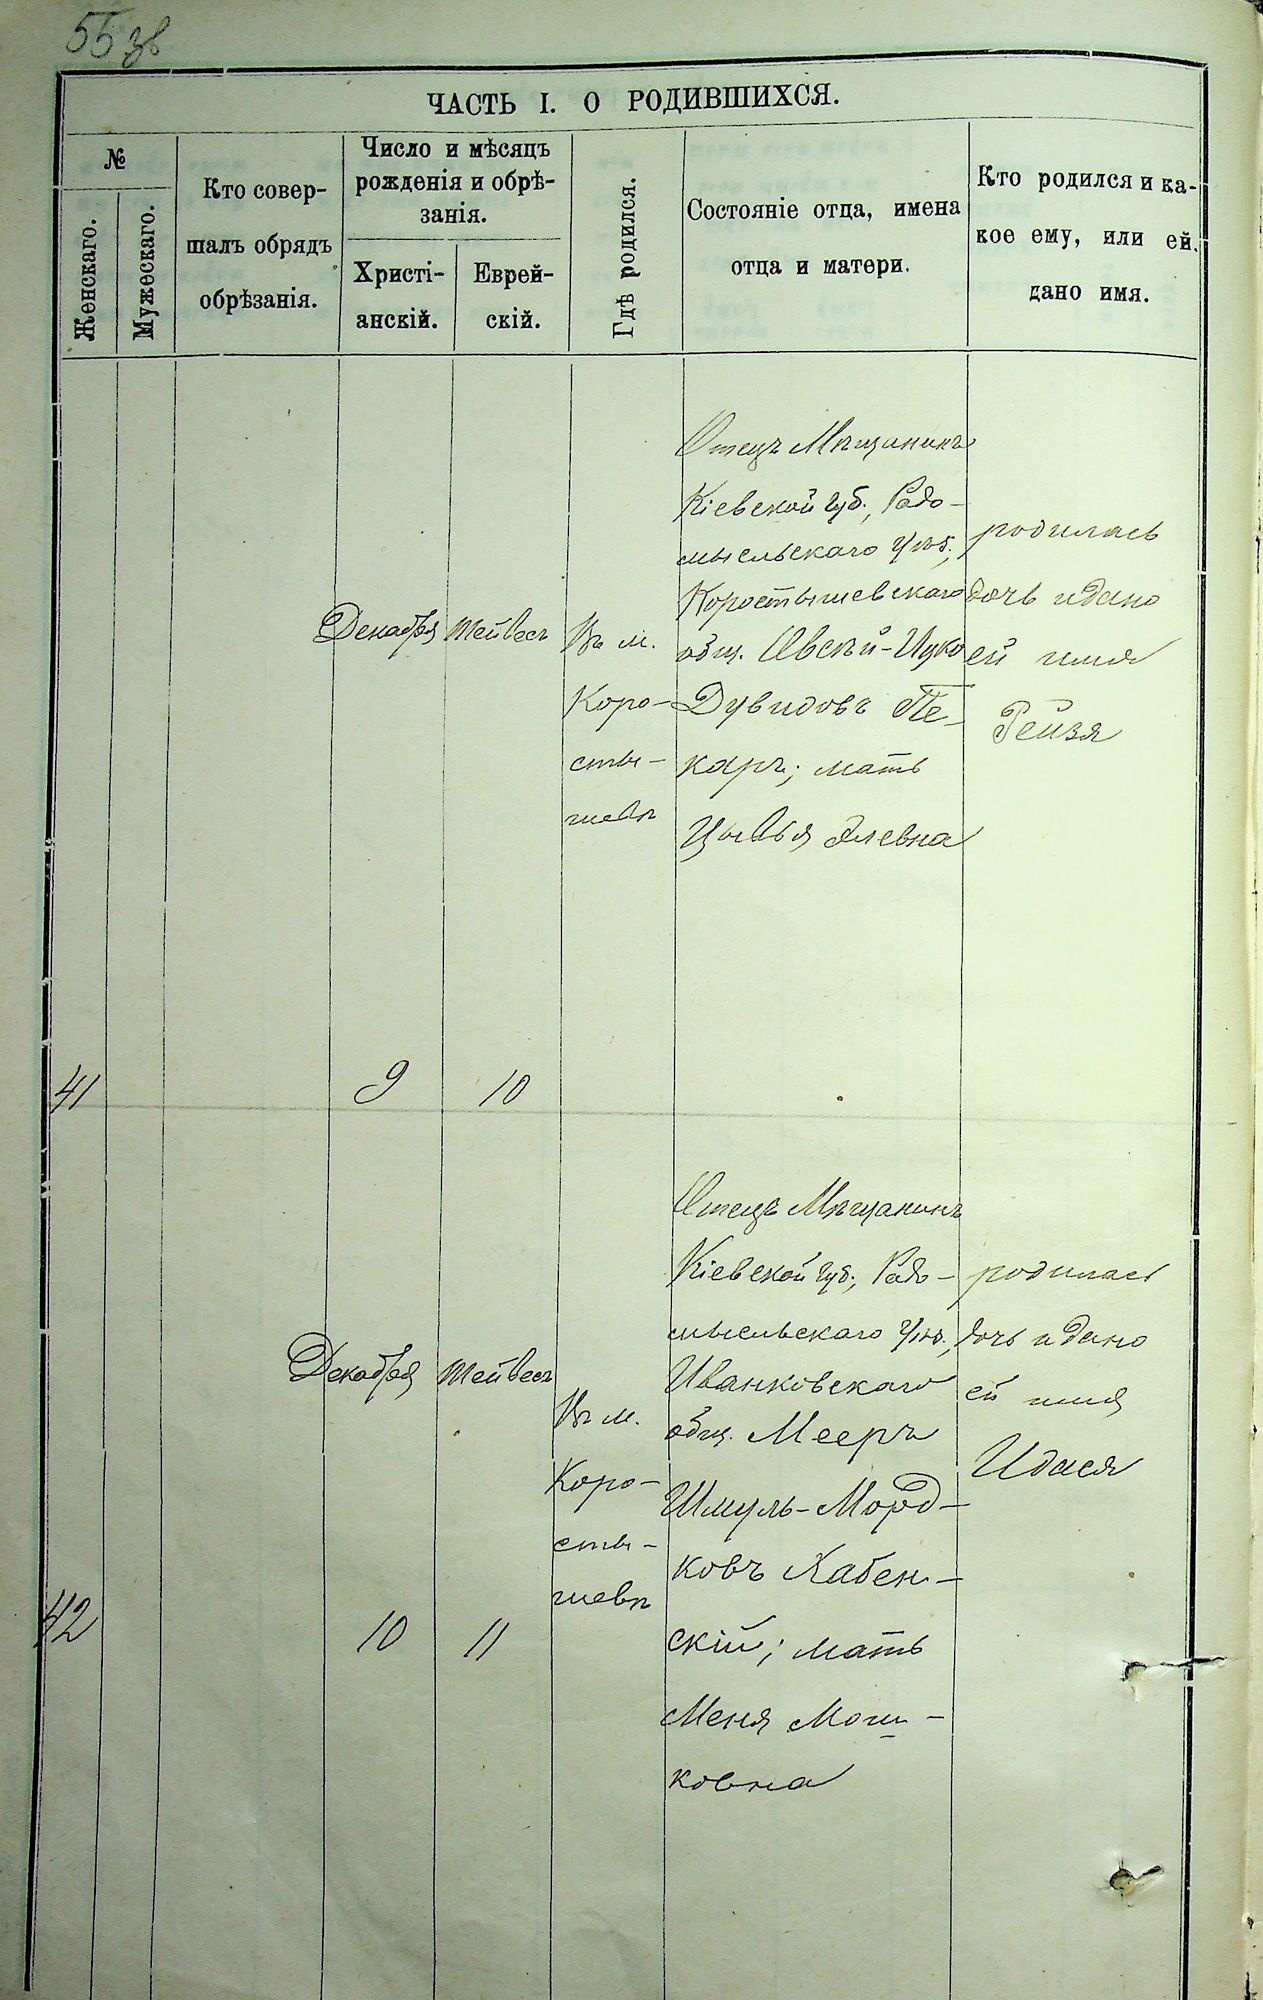 55 зв
ЧАСТЬ I. О РОДИВШИХСЯ.
№
Женскаго.
Мужескаго.
Кто совер-
шалъ обрядъ
обрѣзанія.
Число и мѣсяцъ
рожденія и обрѣ-
занія.
Христі-
анскій.
Еврей-
скій.
Гдѣ родился.
Состояніе отца, имена
отца и матери.
Кто родился и ка-
кое ему, или ей,
дано имя.
41
Декабря
9
Тейвесъ
10
Въ м.
Коро-
сты-
шевѣ
Отецъ Мѣщанинъ
Кіевской губ., Радо-
мысльскаго уѣз.,
Коростышевскаго
общ. Овсѣй-Ицко
Дувидовъ Пе-
каръ; мать
Цывья Элевна
родилась
дочь и дано
ей имя
Рейзя
42
Декабря
10
Тейвесъ
11
Въ м.
Коро-
сты-
шевѣ
Отецъ Мѣщанинъ
Кіевской губ., Радо-
мысльскаго уѣз.,
Иванковскаго
общ. Мееръ
Шмуль-Морд-
ковъ Хабен-
скій; мать
Меня Мош-
ковна
родилась
дочь и дано
ей имя
Идася